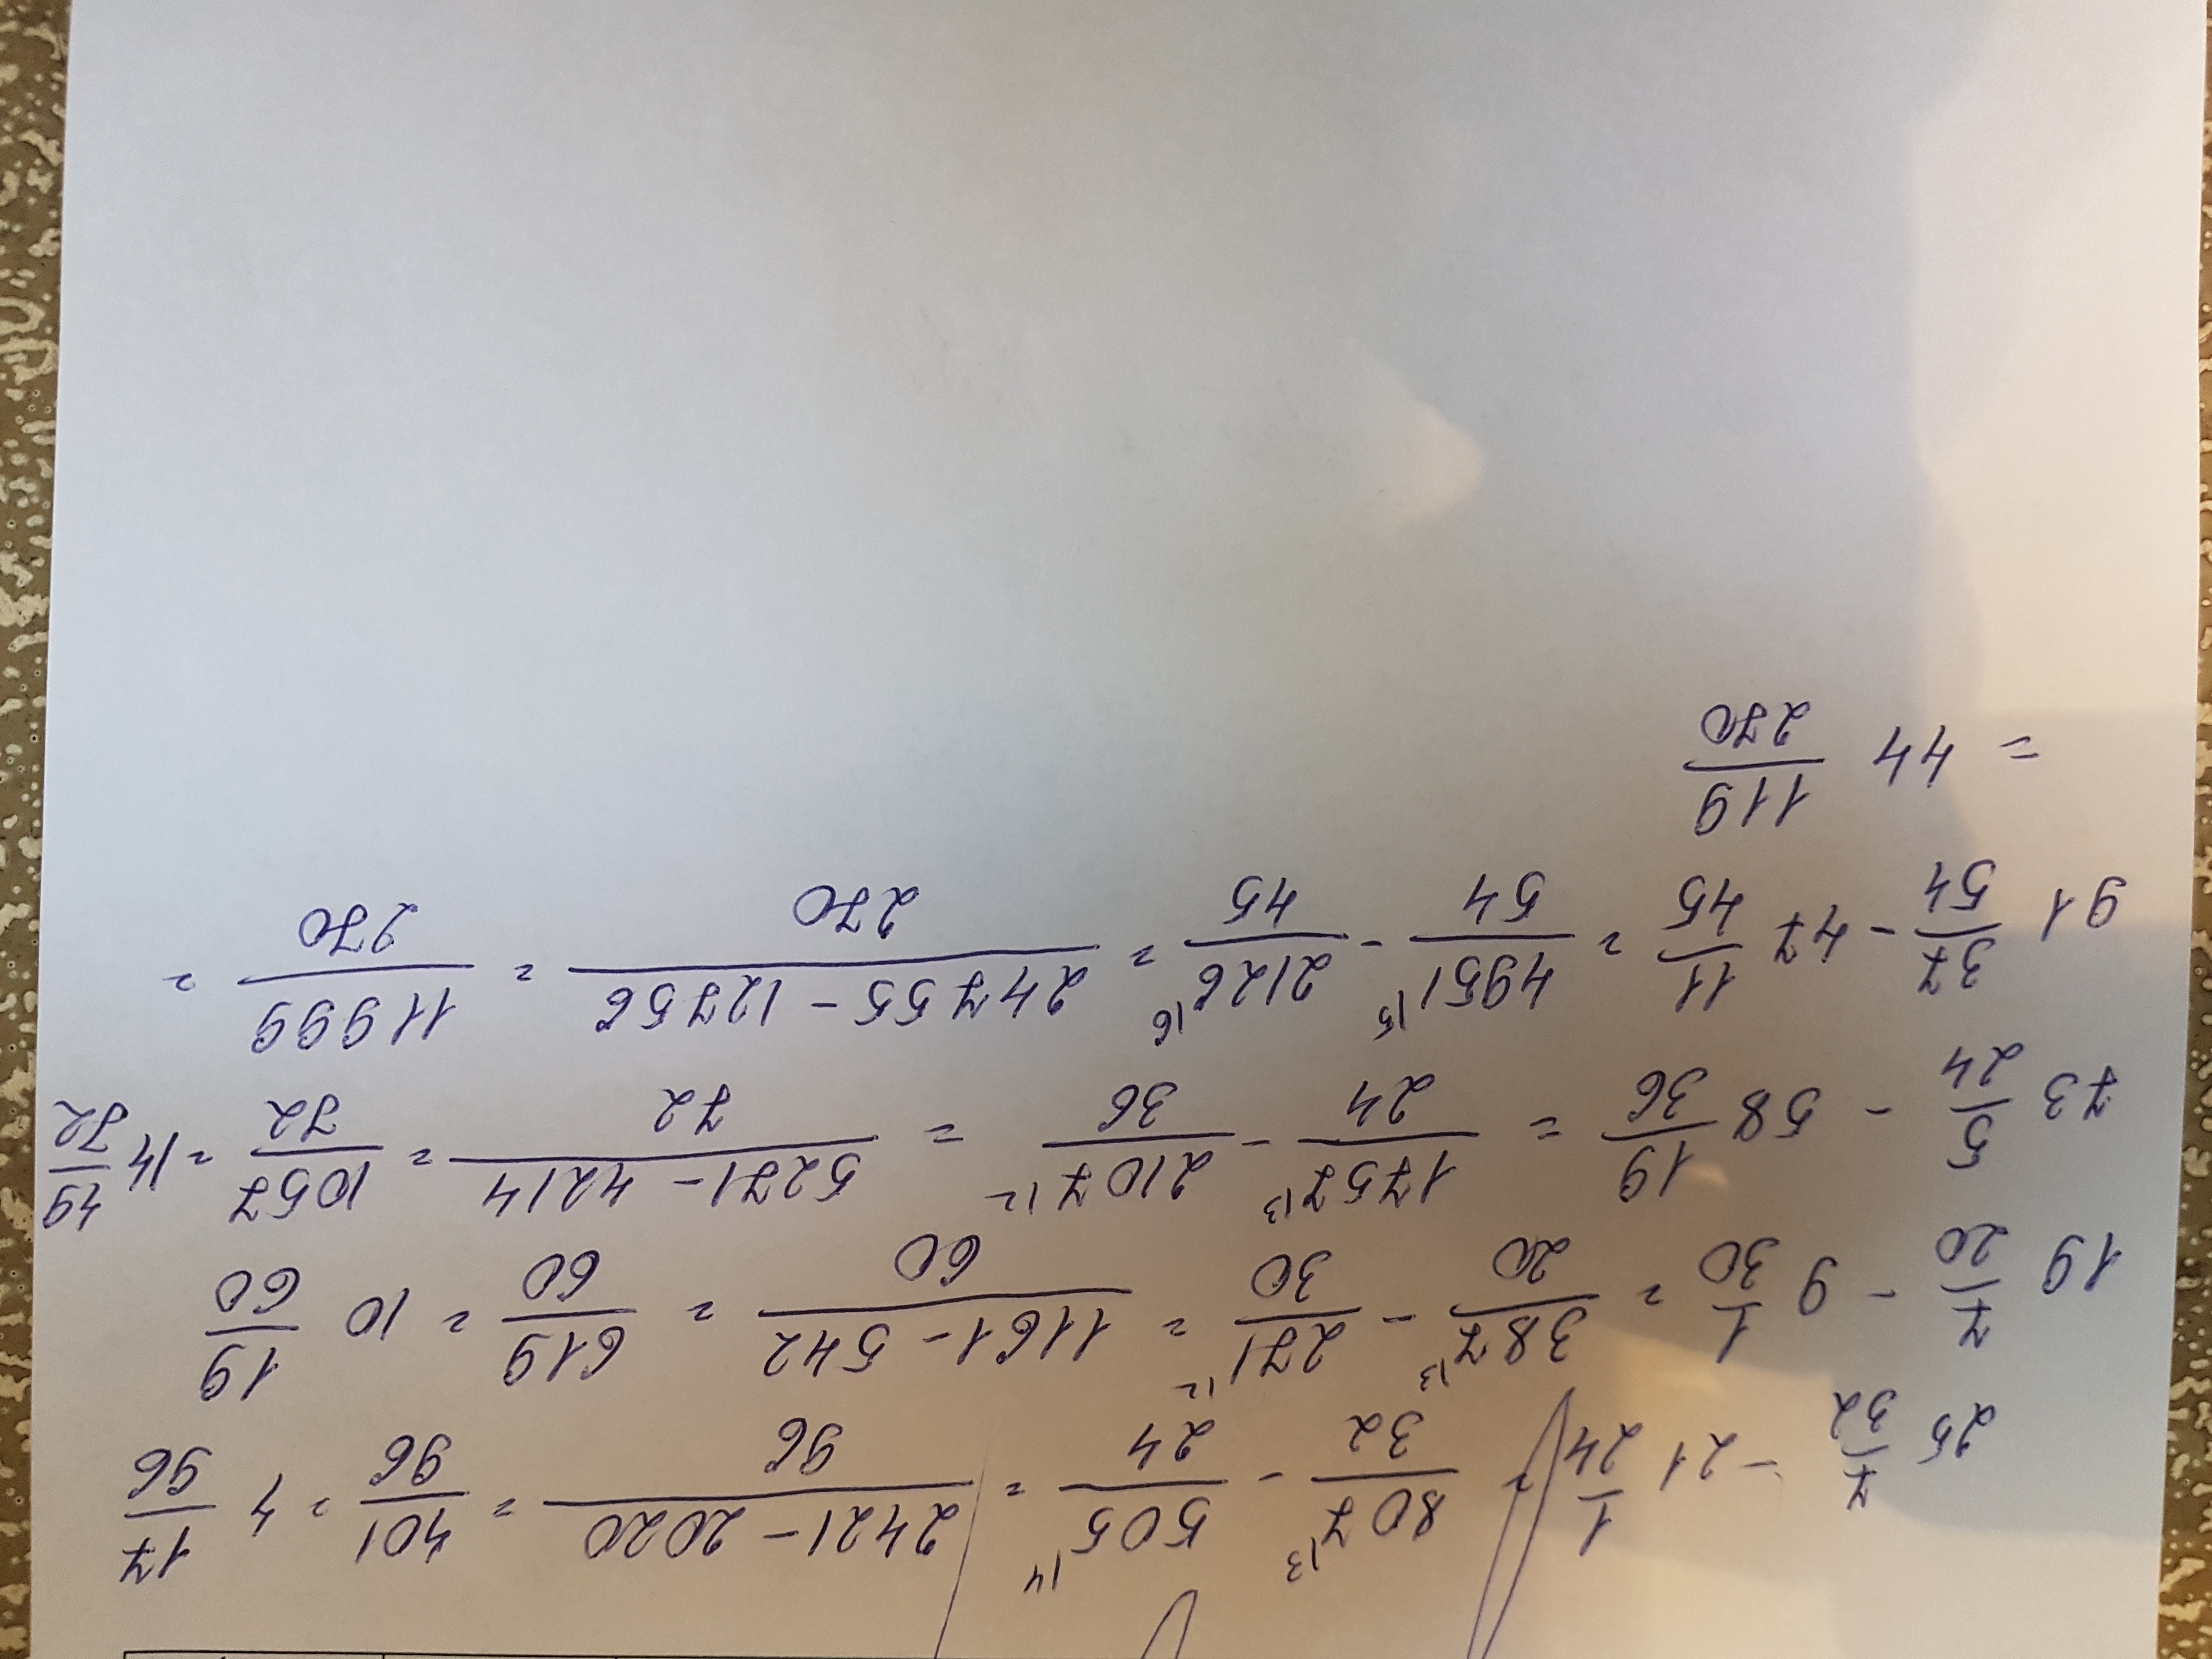 25 7/32 - 21 1/24 = 807/32 |3 - 505/24 |4 = 2421 - 2020/96 = 401/96 = 4 17/96
19 7/20 - 9 1/30 = 387/20 |3 - 271/30 |2 = 1161 - 542/60 = 619/60 = 10 19/60
73 5/24 - 58 19/36 = 1757/24 |3 - 2107/36 |2 = 5271 - 4214/72 = 1057/72 = 14 49/72
91 37/54 - 47 11/45 = 4951/54 |5 - 2126/45 |6 = 24755 - 12756/270 = 11999/270 =
= 44 119/270